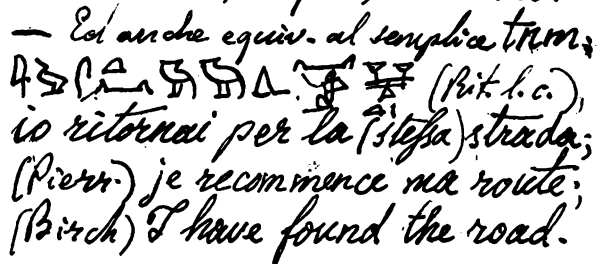 — Ed anche equiv. al semplice tnm;
(Rit. l. c.),
io ritornai per la (stessa) strada;
(Pierr.) je recommence ma route;
(Birch) I have found the road.